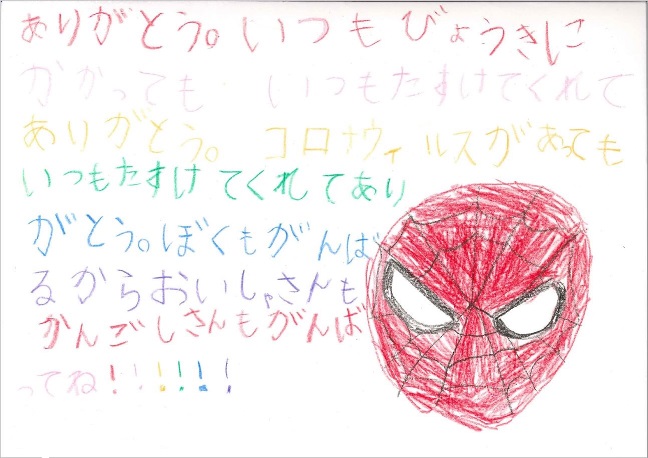 ありがとう。いつもびょうきに
かかっても いつもたすけてくれて
ありがとう。 コロナウィルスがあっても
いつもたすけてくれてあり
がとう。ぼくもがんば
るからおいしゃさんも
かんごしさんもがんば
ってね!!!!!!